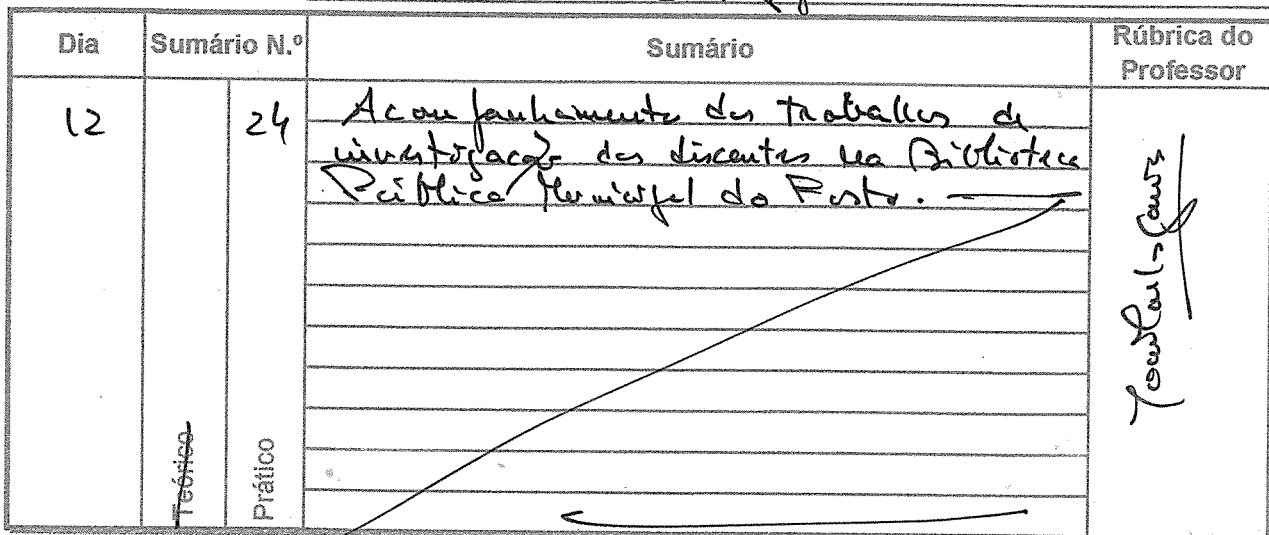 Dia Sumário N.º Sumário Rúbrica do Professor
12 24 Acompanhamento dos trabalhos de
investigação dos discentes na Biblioteca
Pública Municipal do Porto.
Teórico Prático